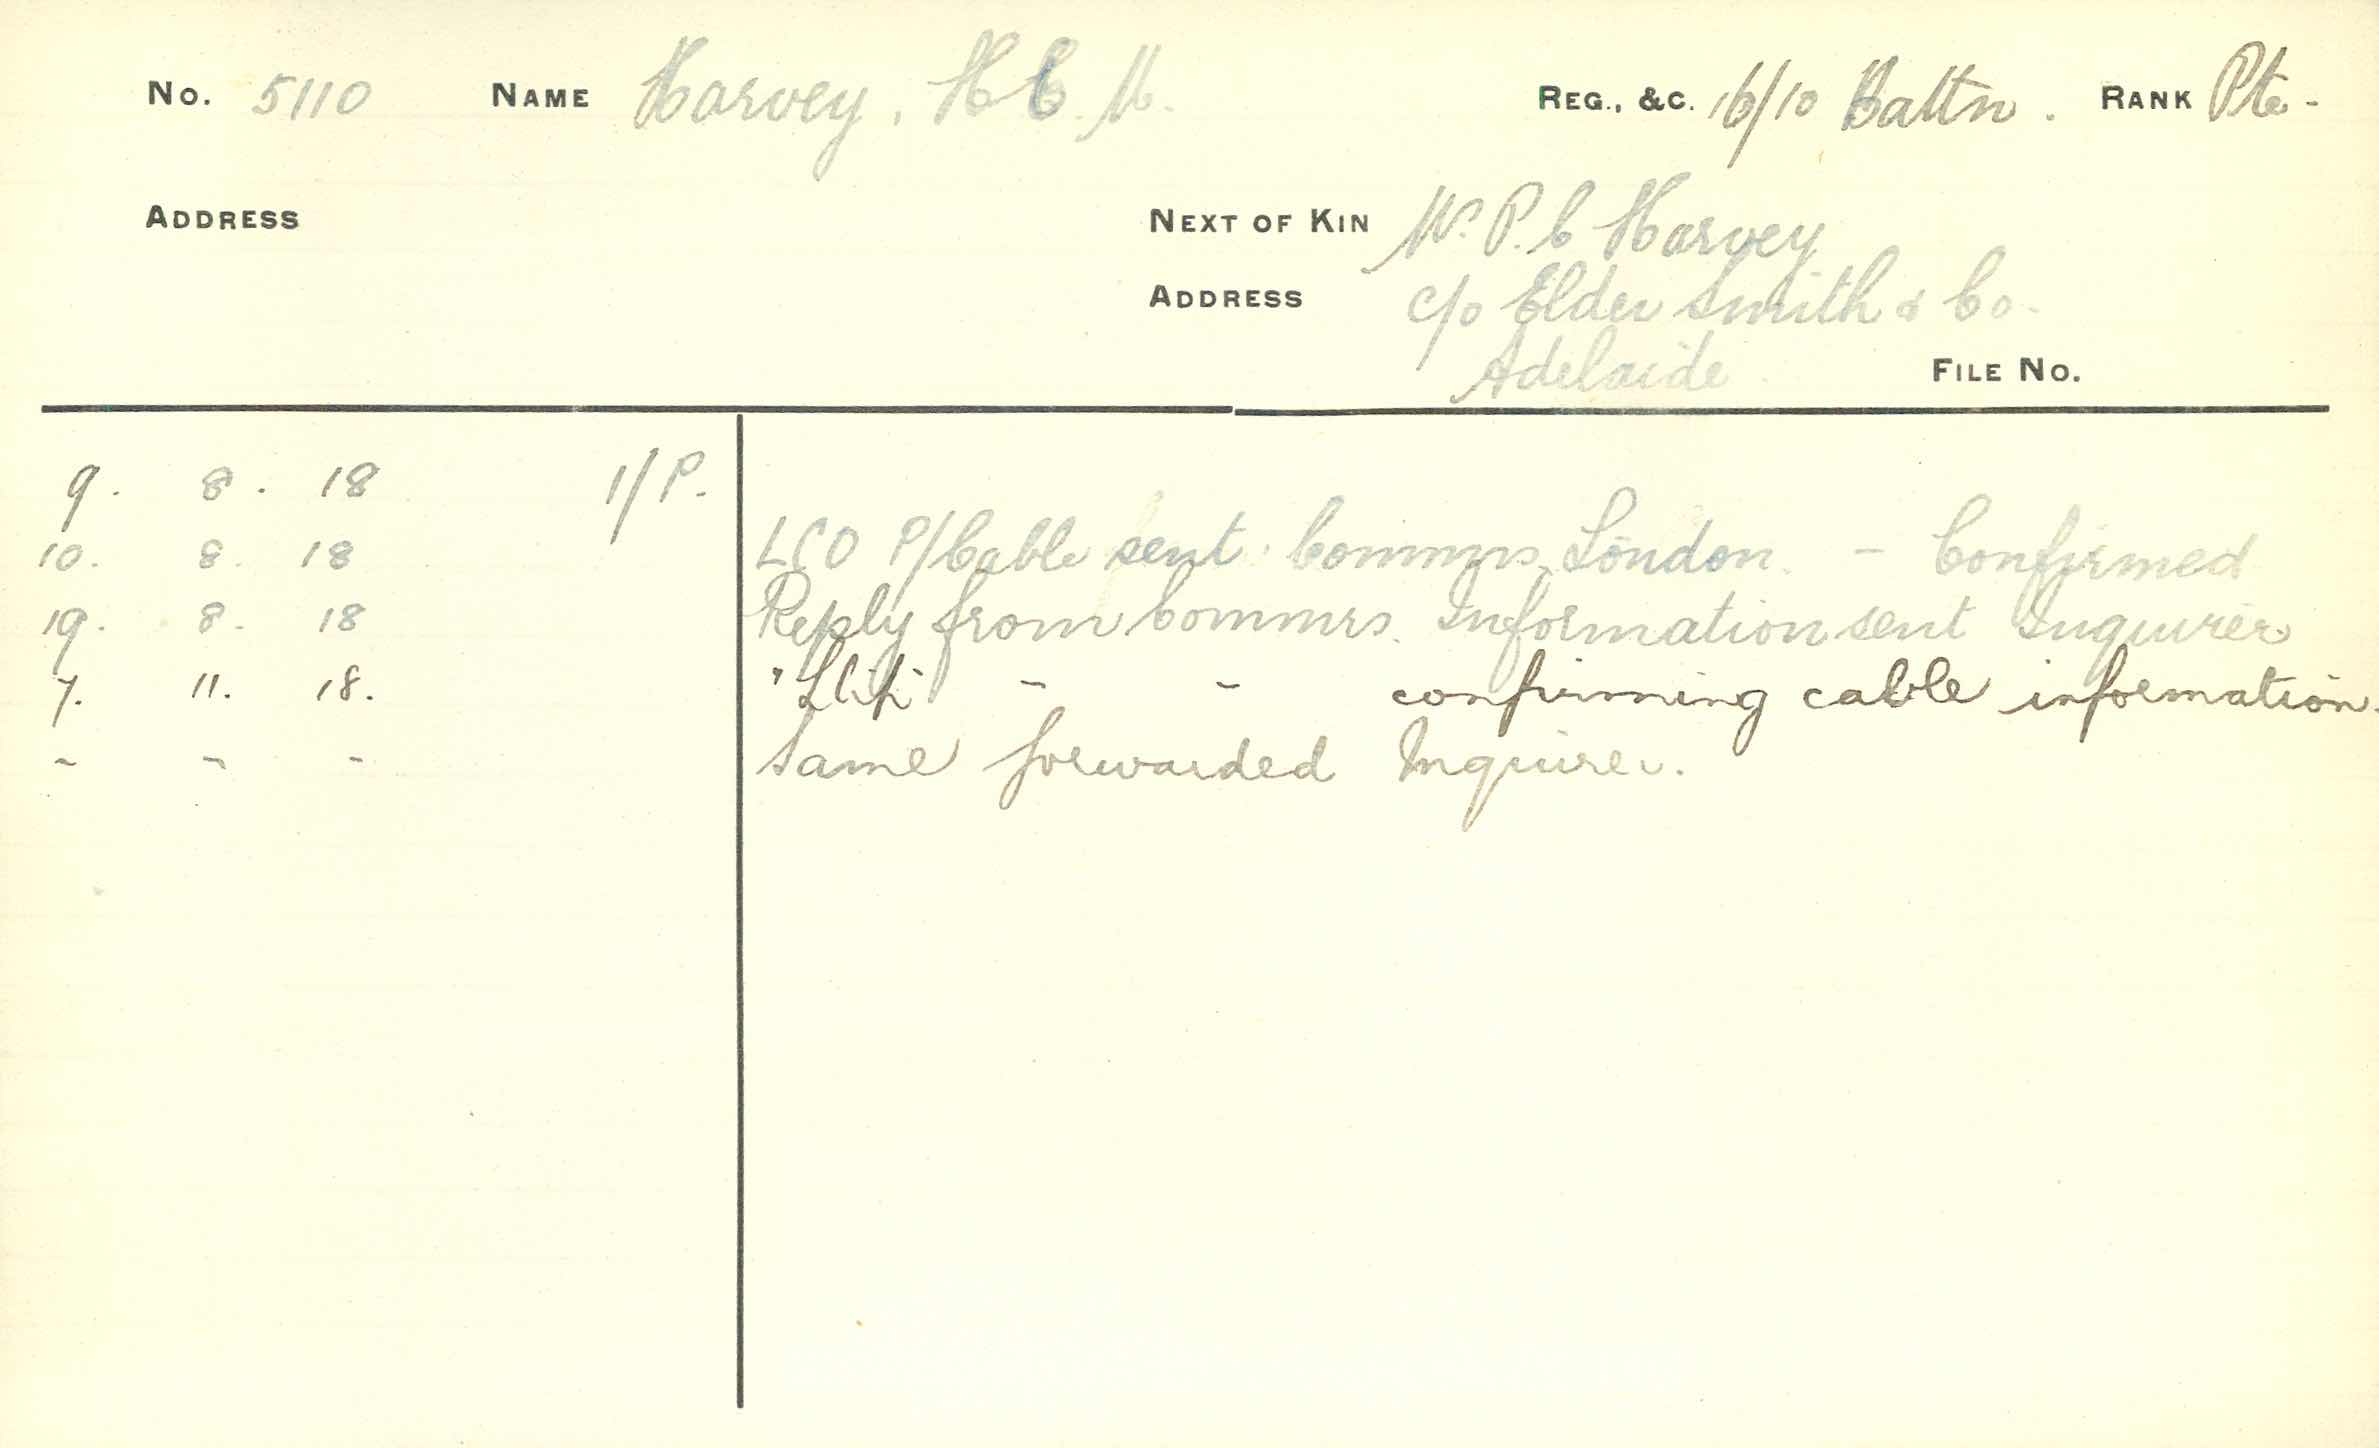 No. 5110 NAME Harvey, H C. M. REG., &C. 16/10 Battn. RANK Pte-
ADDRESS NEXT OF KIN W. P. C Harvey
ADDRESS c/o Elder Smith & Co-
Adelaide FILE No.
9. 8. 18 1/P.
10. 8. 18 LCO P/Cable sent Commrs London. - Confirmed
19. 8. 18 Reply from Commrs. Information sent Inquirer
7. 11. 18. "Slip" - - confirming cable information.
- - - Same forwarded Inquirer.